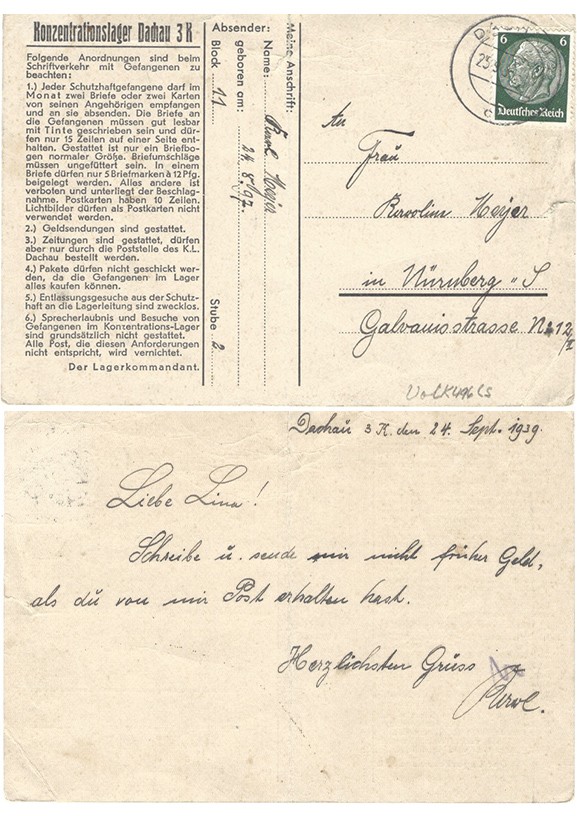 Konzentrationslager Dachau 3 K
Folgende Anordnungen sind beim
Schriftverkehr mit Gefangenen zu
beachten:
1.) Jeder Schutzhaftgefangene darf im
Monat zwei Briefe oder zwei Karten
von seinen Angehörigen empfangen
und an sie absenden. Die Briefe an
die Gefangenen müssen gut lesbar
mit Tinte geschrieben sein und dür-
fen nur 15 Zeilen auf einer Seite ent-
halten. Gestattet ist nur ein Briefbo-
gen normaler Größe. Briefumschläge
müssen ungefüttert sein. In einem
Briefe dürfen nur 5 Briefmarken à 12 Pfg.
beigelegt werden. Alles andere ist
verboten und unterliegt der Beschlag-
nahme. Postkarten haben 10 Zeilen.
Lichtbilder dürfen als Postkarten nicht
verwendet werden.
2.) Geldsendungen sind gestattet.
3.) Zeitungen sind gestattet, dürfen
aber nur durch die Poststelle des K.L.
Dachau bestellt werden.
4.) Pakete dürfen nicht geschickt wer-
den, da die Gefangenen im Lager
alles kaufen können.
5.) Entlassungsgesuche aus der Schutz-
haft an die Lagerleitung sind zwecklos.
6.) Sprecherlaubnis und Besuche von
Gefangenen im Konzentrations-Lager
sind grundsätzlich nicht gestattet.
Alle Post, die diesen Anforderungen
nicht entspricht, wird vernichtet.
Der Lagerkommandant.
Absender:
Meine Anschrift:
Name: Karl Meyer
geboren am: 24.8.97.
Block 11 Stube 2
6 6
Deutsches Reich
An
Frau
Karolin Meyer
in Nürnberg "S
Galvanisstrasse No 12/I
Dachau 3 K. den 24. Sept. 1939.
Liebe Lina!
Schreibe u. sende mir nicht früher Geld,
als du von mir Post erhalten hast.
Herzlichsten Grüss
Karl.